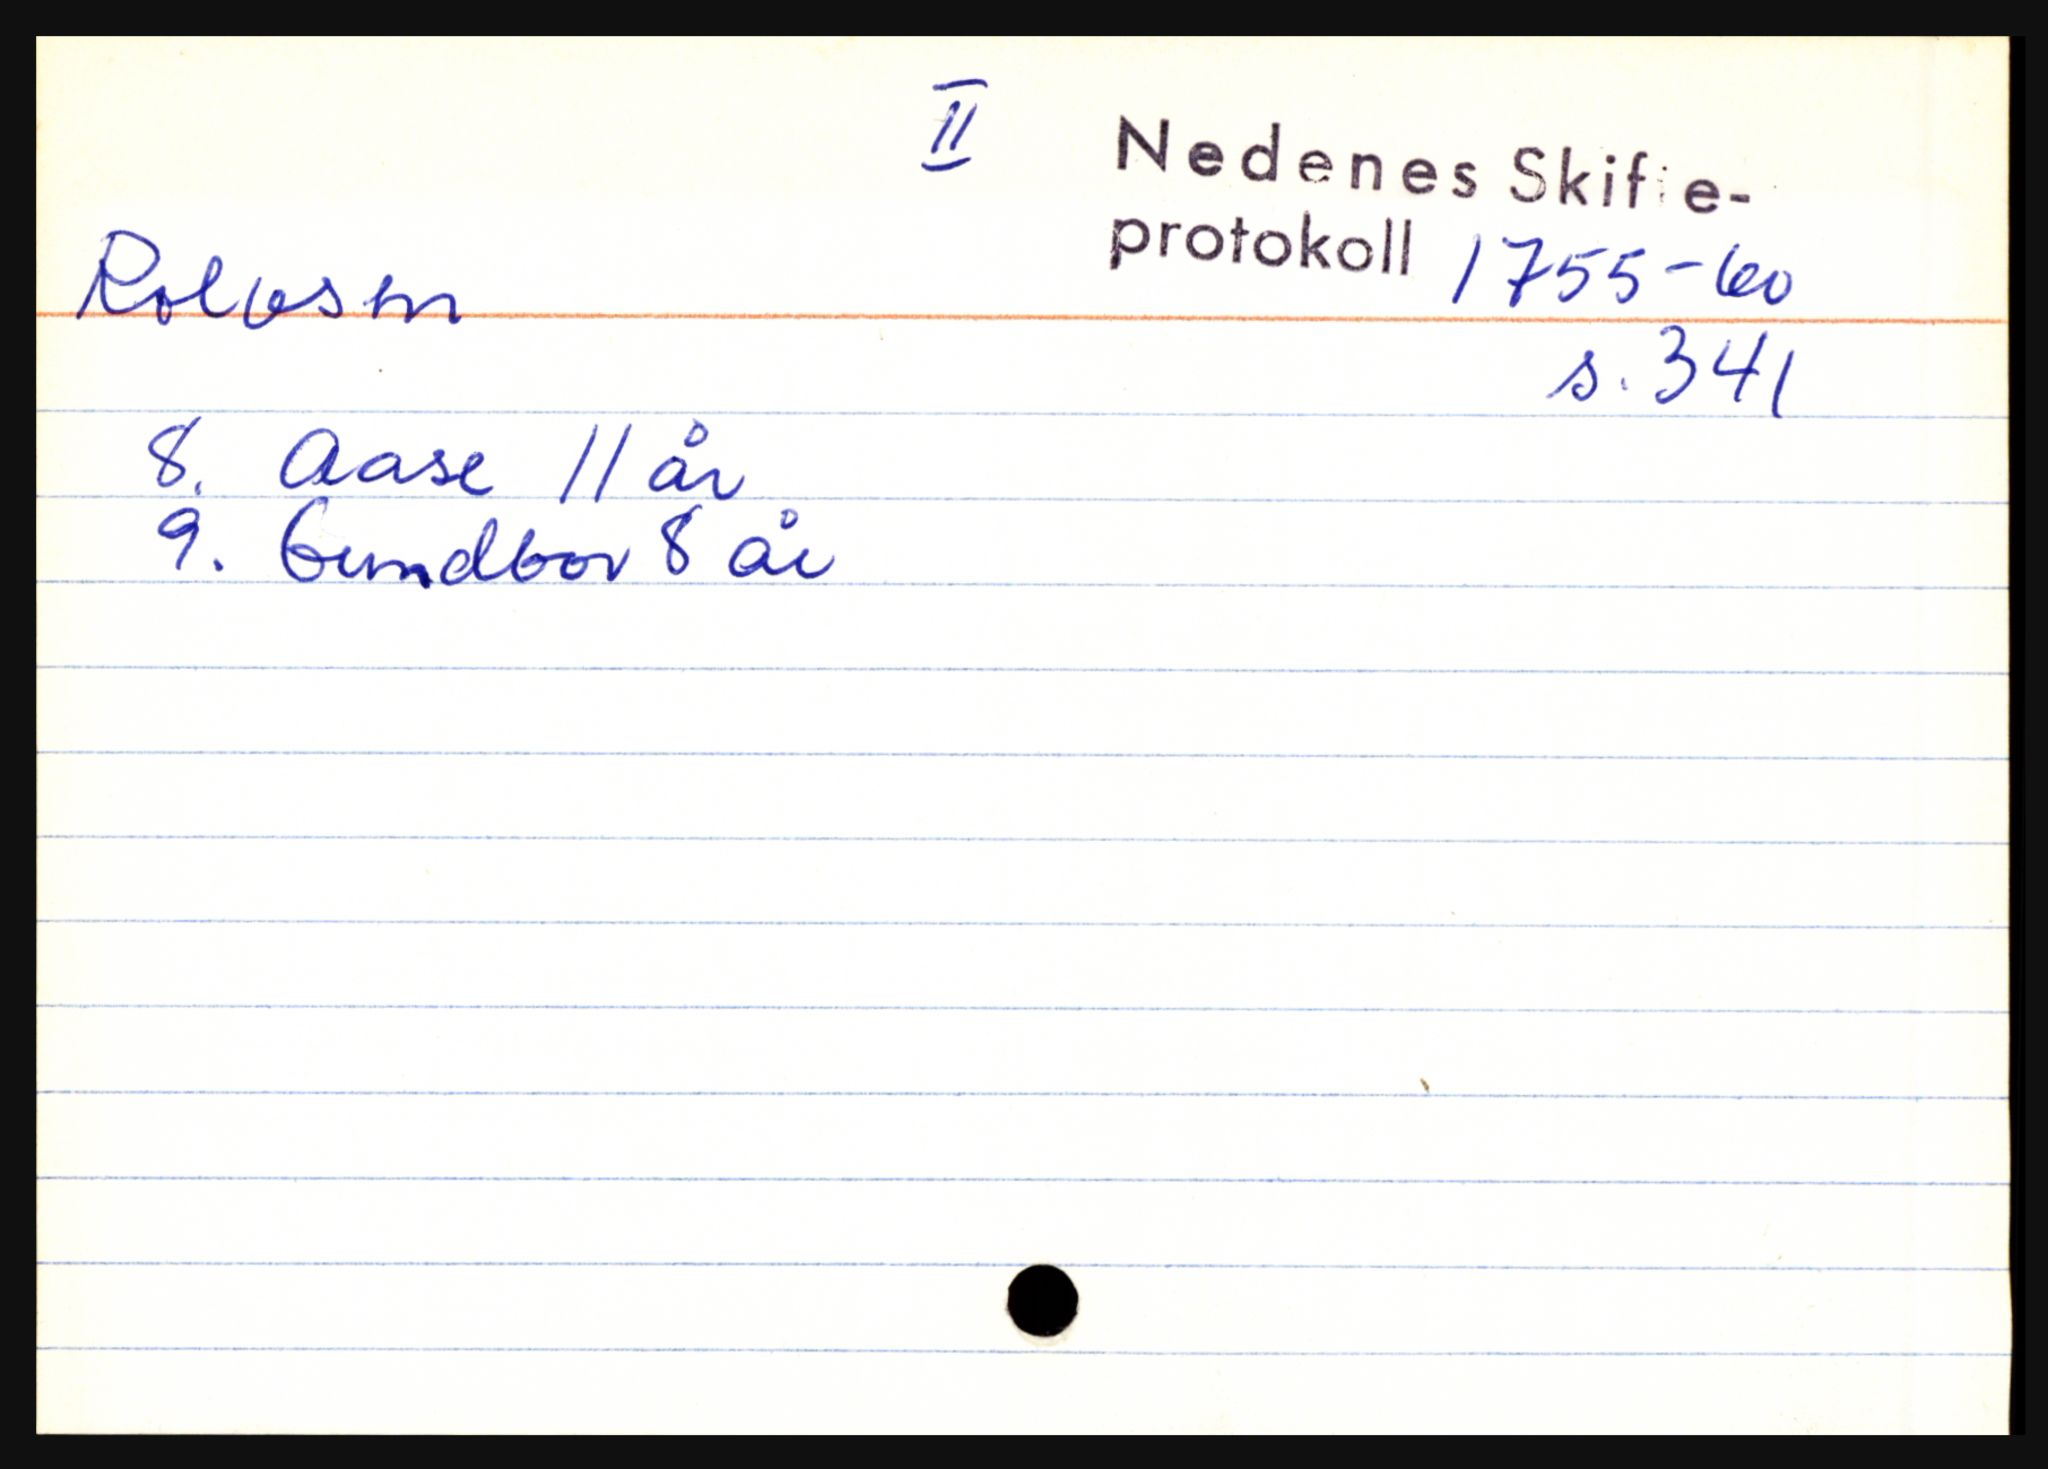 II
Nedenes Skifte-
protokoll 1755-60
Rolvsen
s. 341
8. Aase 11 år
9. Gundbor 8 år